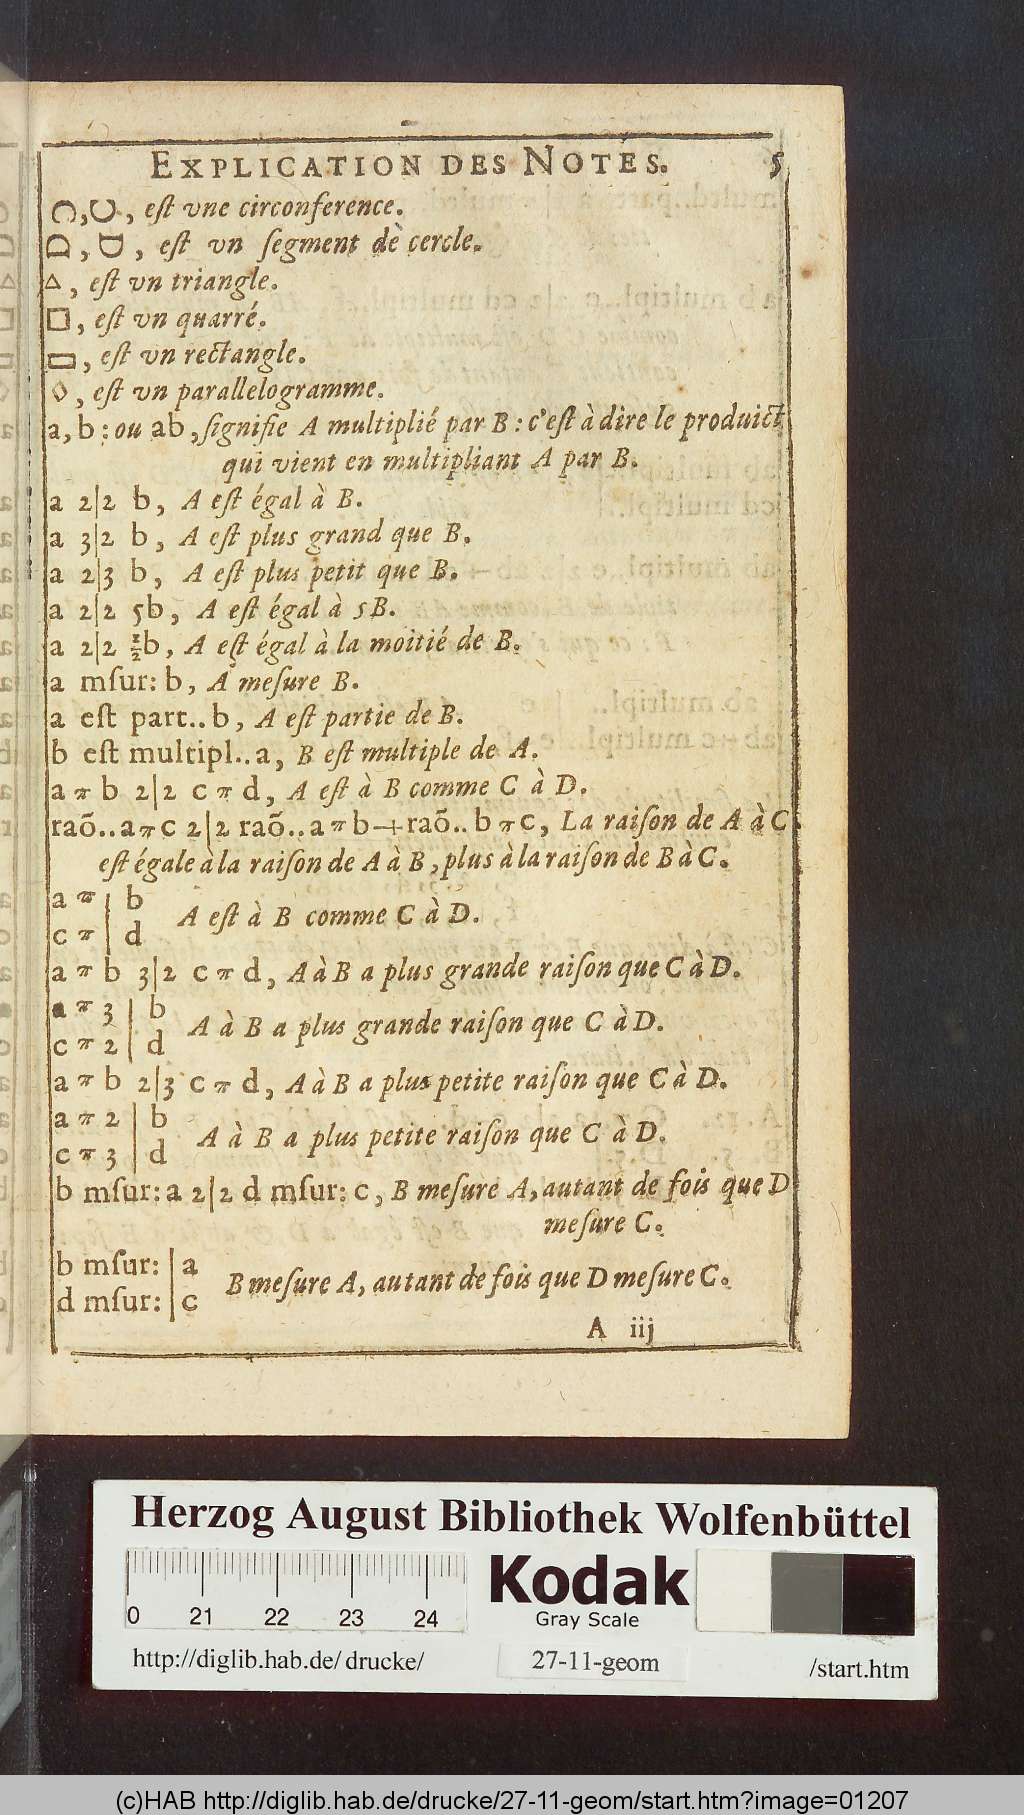 EXPLICATION DES NOTES. 5
, est vne circonference.
, est vn segment de cercle.
△, est vn triangle.
□, est vn quarré.
▭, est vn rectangle.
◊, est vn parallelogramme.
a, b : ou ab, signifie A multiplié par B : c'est à dire le produict
qui vient en multipliant A par B.
a 2|2 b, A est égal à B.
a 3|2 b, A est plus grand que B.
a 2|3 b, A est plus petit que B.
a 2|2 5b, A est égal à 5B.
a 2|2 ½b, A est égal à la moitié de B.
a mſur: b, A meſure B.
a eſt part..b, A eſt partie de B.
b eſt multipl..a, B eſt multiple de A.
a π b 2|2 c π d, A eſt à B comme C à D.
raõ..aπc 2|2 raõ..aπb+raõ..bπc, La raiſon de A à C
eſt égale à la raiſon de A à B, plus à la raiſon de B à C.
a π | b
c π | d A eſt à B comme C à D.
a π b 3|2 c π d, A à B a plus grande raiſon que C à D.
a π 3 | b
c π 2 | d A à B a plus grande raiſon que C à D.
a π b 2|3 c π d, A à B a plus petite raiſon que C à D.
a π 2 | b
c π 3 | d A à B a plus petite raiſon que C à D.
b mſur: a 2|2 d mſur: c, B meſure A, autant de fois que D
meſure C.
b mſur: | a
d mſur: | c B meſure A, autant de fois que D meſure C.
A iij
Herzog August Bibliothek Wolfenbüttel
Kodak
Gray Scale
0 21 22 23 24
http://diglib.hab.de/drucke/ 27-11-geom /start.htm
(c)HAB http://diglib.hab.de/drucke/27-11-geom/start.htm?image=01207